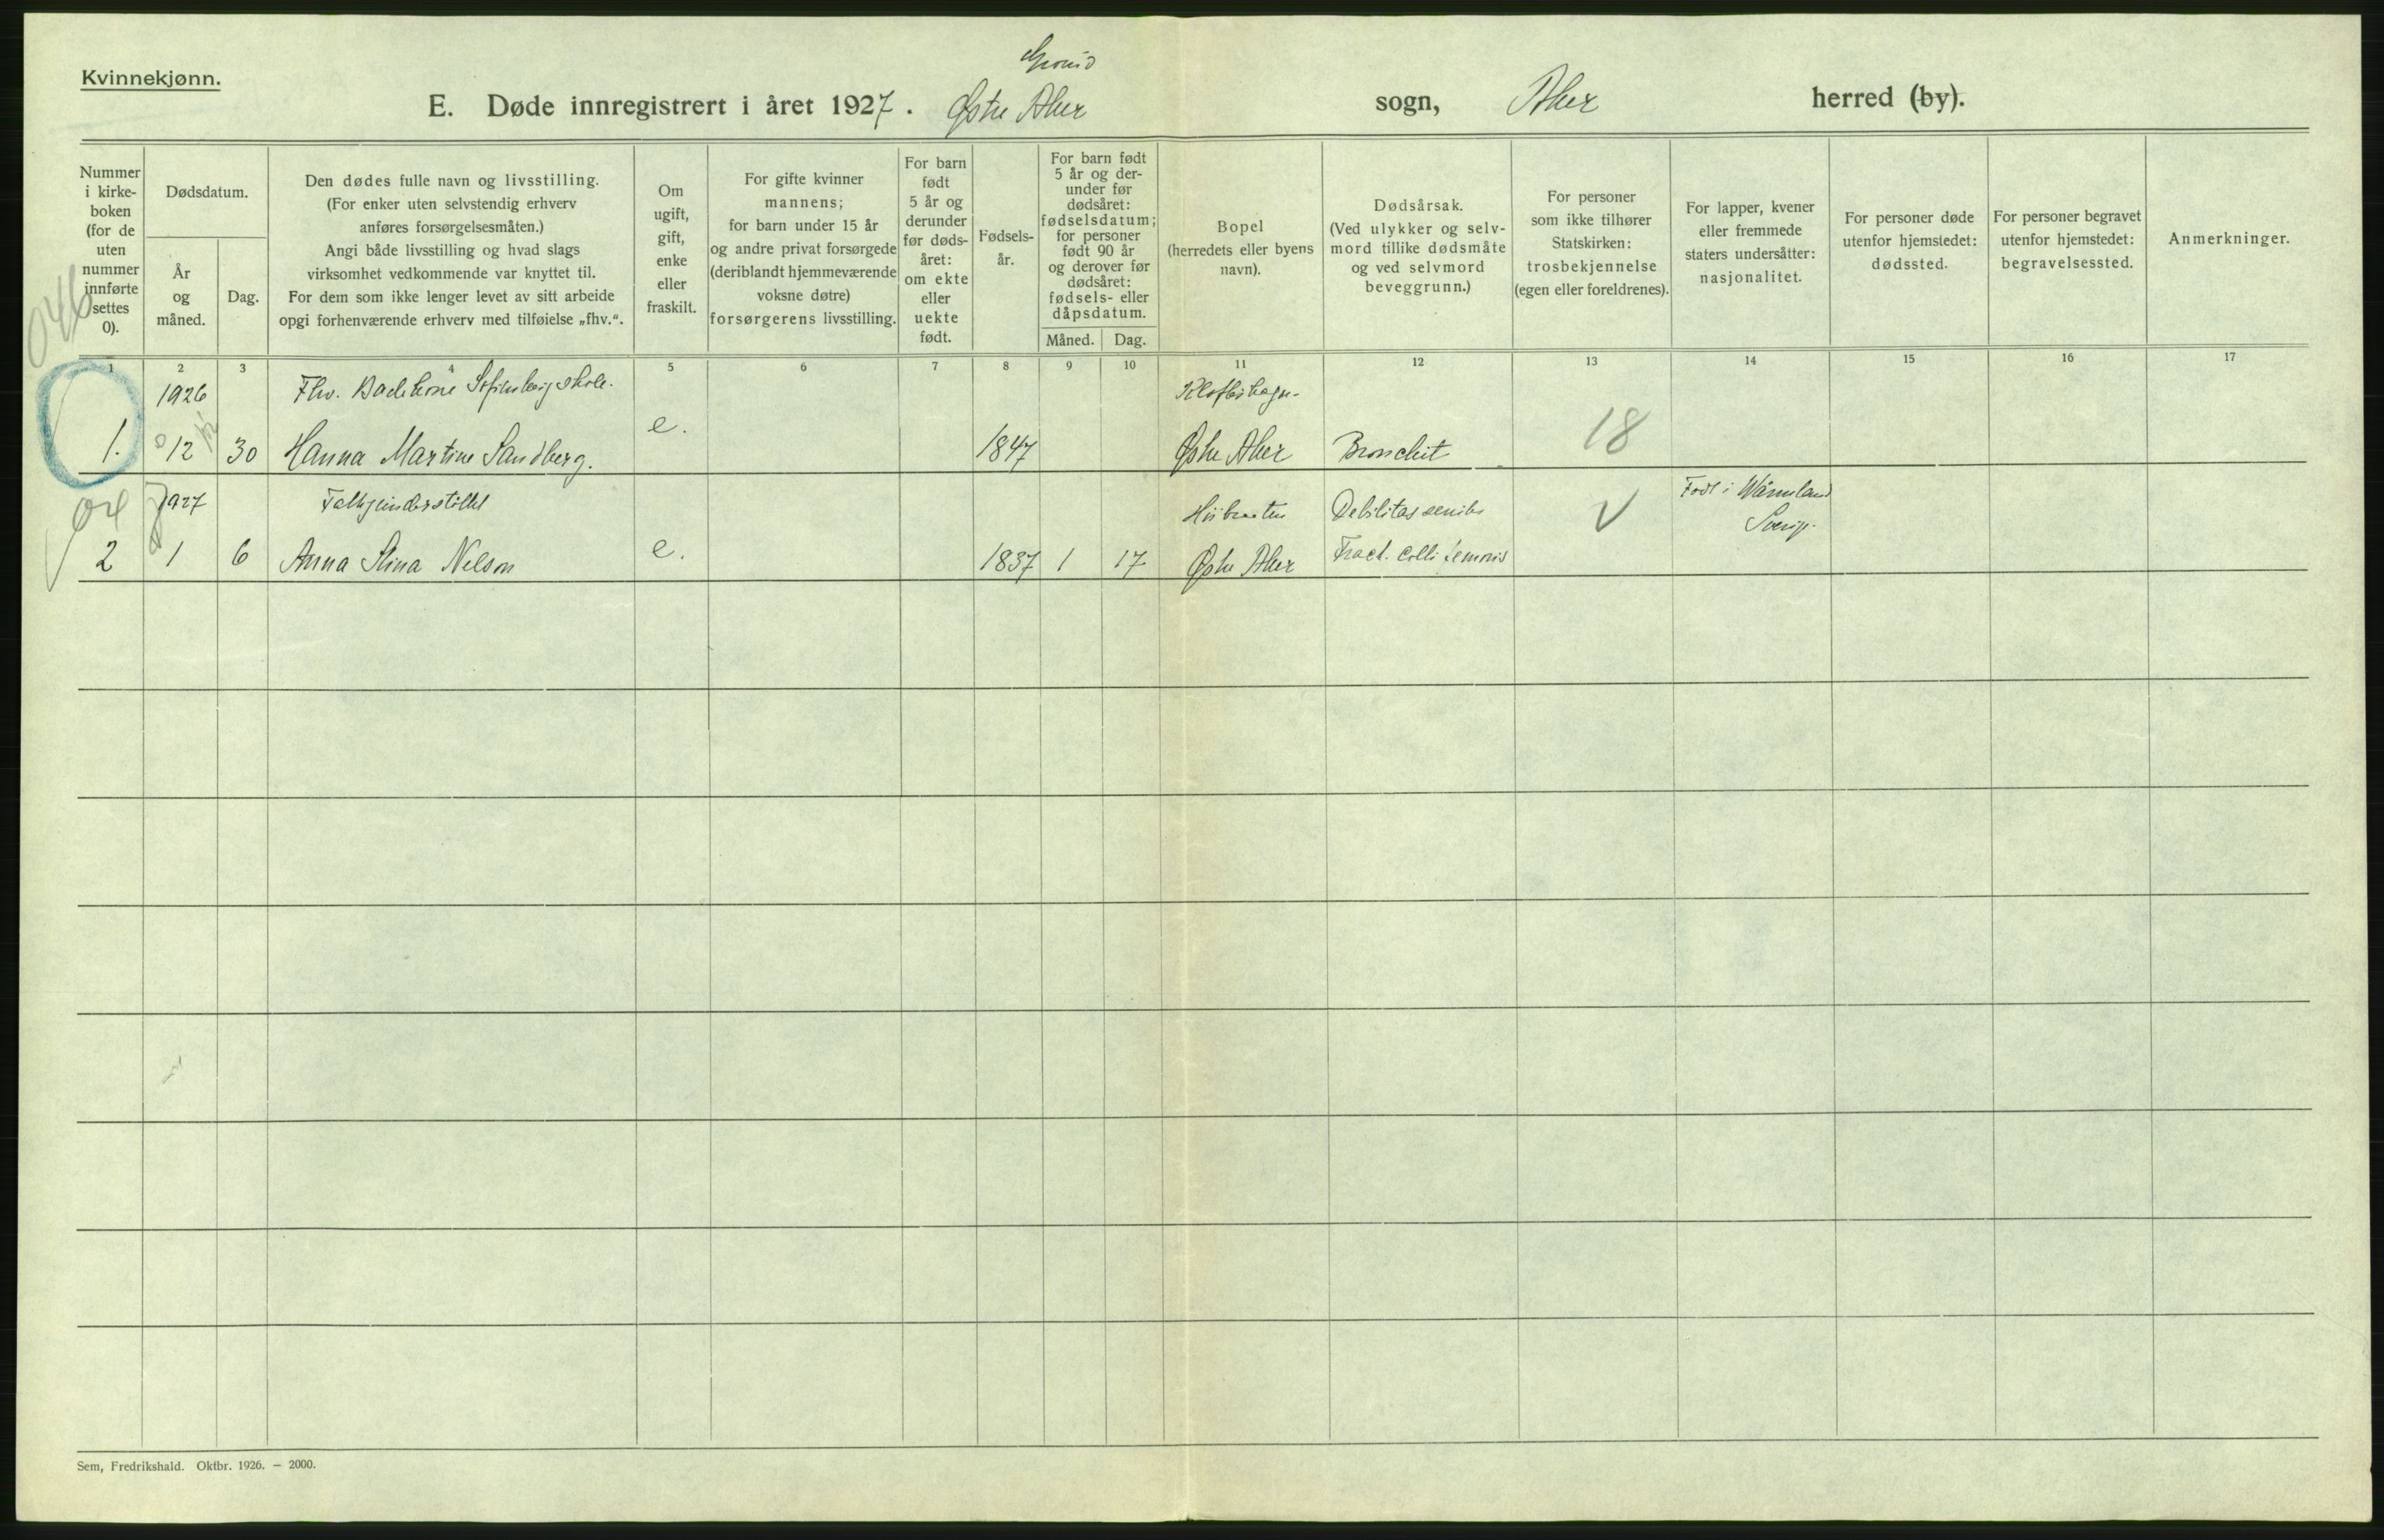 Kvinnekjønn.
E. Døde innregistrert i året 1927. Østre Aker sogn, Aker herred (by).
Nummer i kirke-boken (for de uten nummer innførte settes 0).
Dødsdatum.
År og måned.
Dag.
Den dødes fulle navn og livsstilling.
(For enker uten selvstendig erhverv
anføres forsørgelsesmåten.)
Angi både livsstilling og hvad slags
virksomhet vedkommende var knyttet til.
For dem som ikke lenger levet av sitt arbeide
opgi forhenværende erhverv med tilføielse „fhv.“.
Om ugift, gift, enke eller fraskilt.
For gifte kvinner
mannens;
for barn under 15 år
og andre privat forsørgede
(deriblandt hjemmeværende
voksne døtre)
forsørgerens livsstilling.
For barn født 5 år og derunder før døds-året: om ekte eller uekte født.
Fødsels-år.
For barn født
5 år og der-
under før
dødsåret:
fødselsdatum;
for personer
født 90 år
og derover før
dødsåret:
fødsels- eller
dåpsdatum.
Måned. Dag.
Bopel
(herredets eller byens
navn).
Dødsårsak.
(Ved ulykker og selv-
mord tillike dødsmåte
og ved selvmord
beveggrunn.)
For personer
som ikke tilhører
Statskirken:
trosbekjennelse
(egen eller foreldrenes).
For lapper, kvener
eller fremmede
staters undersåtter:
nasjonalitet.
For personer døde
utenfor hjemstedet:
dødssted.
For personer begravet
utenfor hjemstedet:
begravelsessted.
Anmerkninger.
1 2 3 4 5 6 7 8 9 10 11 12 13 14 15 16 17
1926 Fhv. Badekone
1. 12 30 Hanna Martine Sandberg. e. 1847 Østre Aker Bronchit 18
1927 Debilitas senilis Født i Wärmland
2 1 6 Anna Stina Nelson e. 1837 1 17 Østre Aker Fract. colli femoris
Sem, Fredrikshald. Oktbr. 1926. — 2000.